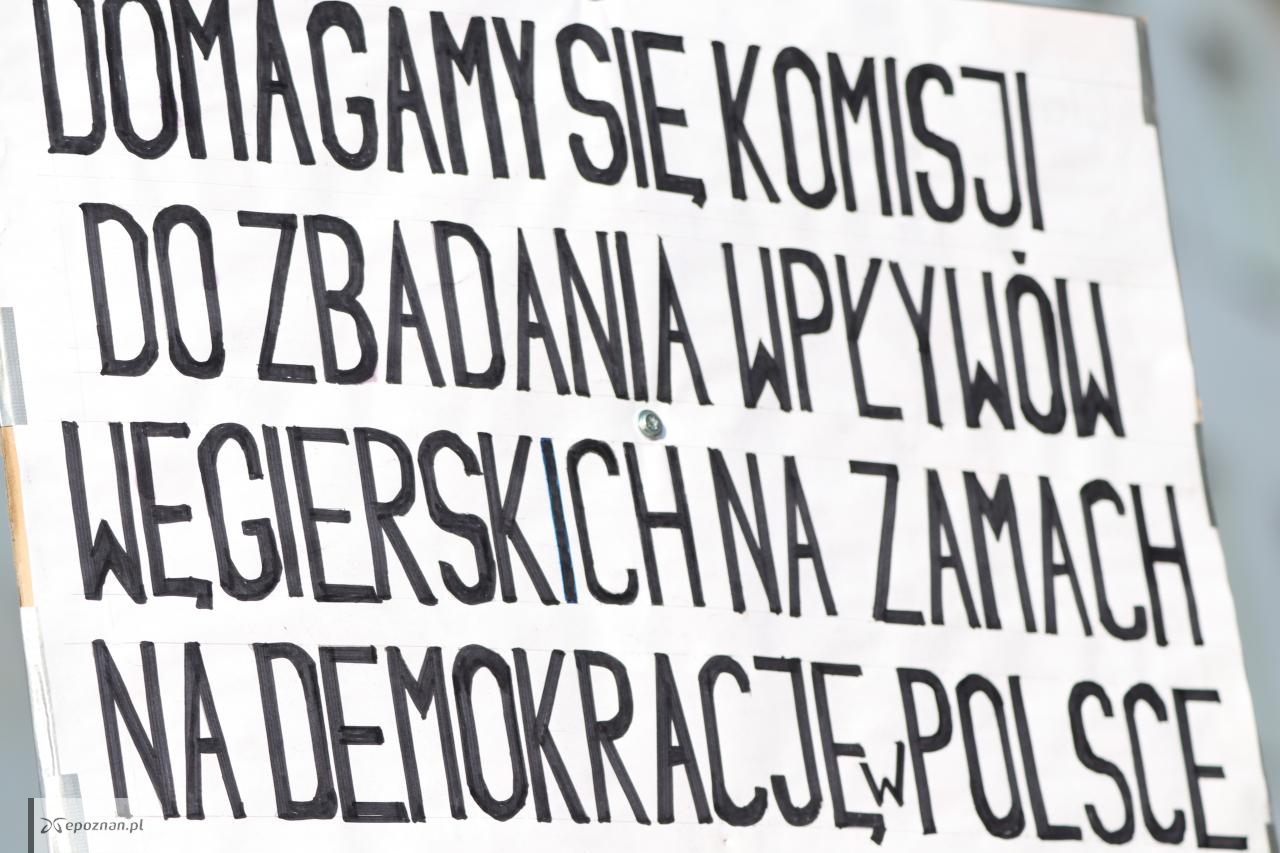 DOMAGAMY SIĘ KOMISJI
DO ZBADANIA WPŁYWÓW
WĘGIERSKICH NA ZAMACH
NA DEMOKRACJĘ w POLSCE
epoznan.pl